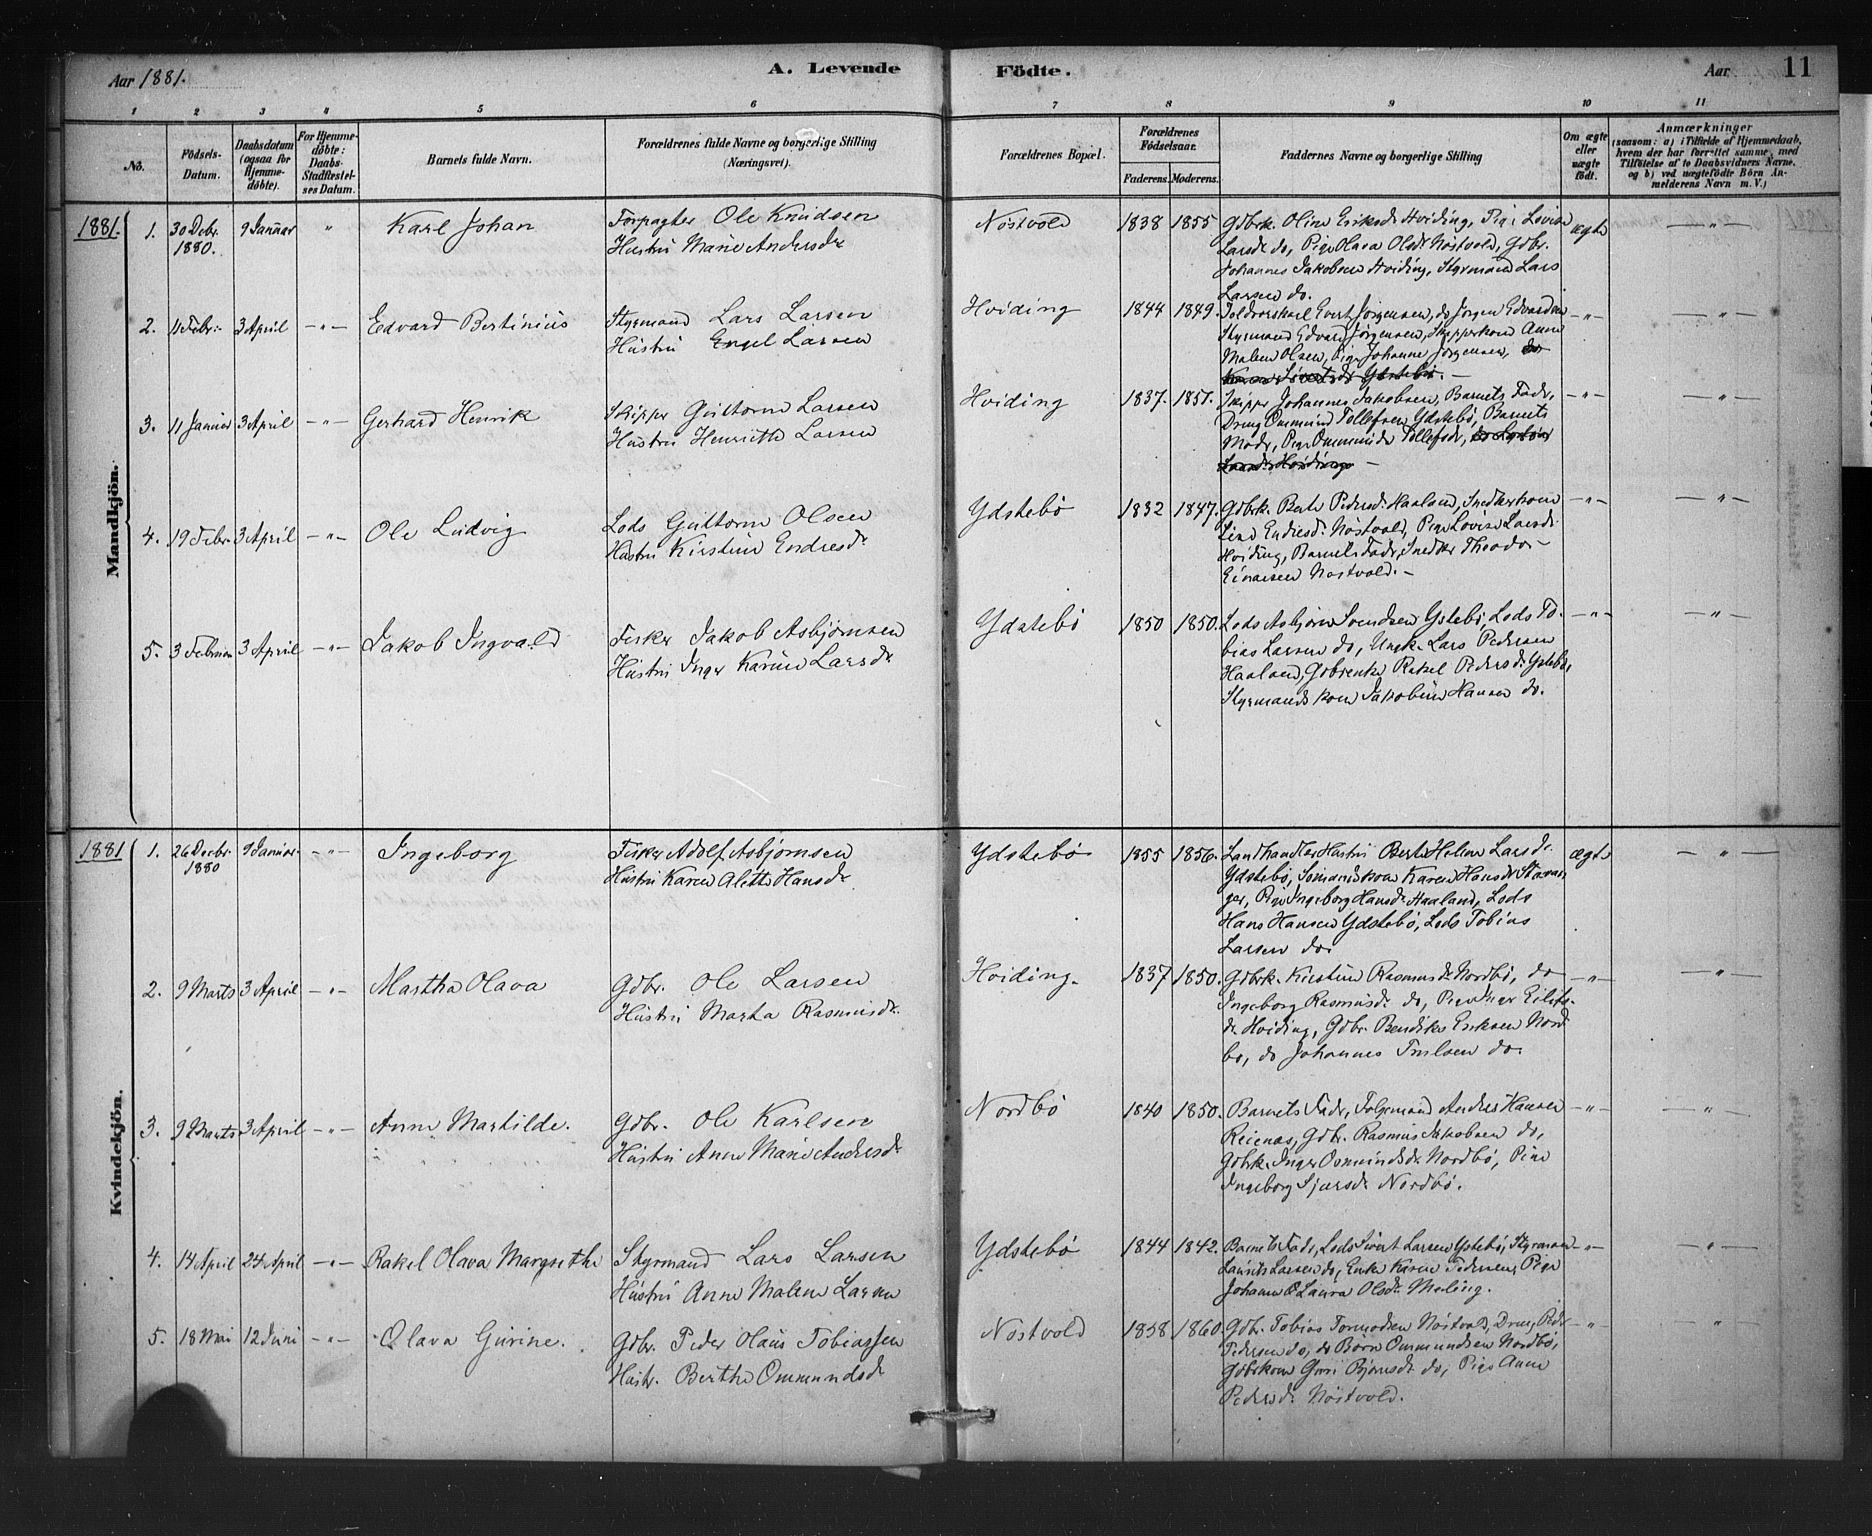 Aar 1881. A. Levende Födte. Aar 11
1 2 3 4 5 6 7 8 9 10 11
No.
Födsels-
Datum.
Daabsdatum
(ogsaa for
Hjemme-
døbte).
For Hjemme-
døbte:
Daabs-
Stadfæstel-
ses Datum.
Barnets fulde Navn.
Forældrenes fulde Navne og borgerlige Stilling
(Næringsvei).
Forældrenes Bopæl.
Forældrenes
Fødselsaar.
Faderens. Moderens.
Faddernes Navne og borgerlige Stilling
Om ægte
eller
uægte
født.
Anmærkninger
(saasom: a) i Tilfælde af Hjemmedaab,
hvem der har forrettet samme, med
Tilföielse af to Daabsvidners Navne,
og b) ved uægtefödte Börn An-
melderens Navn m. V.)
Mandkjön.
1881. 1. 30 Debr. 1880. 9 Januar " Karl Johan
Forpagter Ole Knudsen
Hustru Marie Andersdr
Nöstvold 1838 1855
Gdbrk. Oline Eriksdr Hviding, Pige Lovise
Larsdr do, Pige Olava Olsdr Nöstvold, Gdbr.
Johannes Jakobsen Hviding, Styrmand Lars
Larsen do.
ægte — " —
2. 11 Febr. 3 April — " — Edvard Bertinius
Styrmand Lars Larsen
Hustru Engel Larsen
Hviding 1844 1849.
Toldoverkarl Evert Jörgensen, do Jörgen Edvardsen
Styrmand Edvard Jörgensen, Skipperkone Anne
Malene Olsen, Pige Johanne Jörgensen, do
Ydstebö. —
— " — — " —
3. 11 Januar 3 April — " — Gerhard Henrik
Skipper Guttorm Larsen
Hustru Henriette Larsen
Hviding 1837. 1851.
Skipper Johannes Jakobsen, Barnets Fader,
Dreng Ommund Tollefsen Ydstebö, Barnets
Moder, Pige Ommunda Tollefsdr, do
Larsdr Hviding —
— " — — " —
4. 19 Febr. 3 April — " — Ole Ludvig
Lods Guttorm Olsen
Hustru Kirstine Endresdr
Ydstebö 1832 1847.
Gdbrk. Berte Pedersdr Haaland, Snedkerkone
Line Endresdr Nöstvold, Pige Lovise Larsdr
Hviding, Barnets Fader, Snedker Theodor
Einarsen Nöstvold. —
— " — — " —
5. 3 Februar 3 April — " — Jakob Ingvald
Fisker Jakob Asbjörnsen
Hustru Inger Karine Larsdr
Ydstebö 1850 1850.
Lods Asbjörn Svendsen Ystebö, Lods To-
bias Larsen do, Ungk. Lars Pedersen
Haaland, Gdbrenke Rakel Pedersdr Ystebö,
Styrmandskone Jakobine Hansen do.
— " — — " —
Kvindekjön.
1881 1. 26 Decbr. 1880 9 Januar — " — Ingeborg
Fisker Adolf Asbjörnsen
Hustru Karen Alette Hansdr
Ydstebö 1855 1856.
Landhandler Hustru Berte Helene Larsdr
Ydstebö, Sömandskone Karen Hansdr Stavan-
ger, Pige Ingeborg Hansdr Haaland, Lods
Hans Hansen Ydstebö, Lods Tobias
Larsen do.
ægte — " —
2. 9 Marts 3 April — " — Martha Olava
Gdbr. Ole Larsen
Hustru Marta Rasmusdr
Hviding. 1837 1850.
Gdbrk. Kirstine Rasmusdr Nordbö, do
Ingeborg Rasmusdr do, Pige Inger Eilifs-
dr Hviding, Gdbr. Bendik Eriksen Nord-
bö, do Johannes Trulsen do.
— " — — " —
3. 9 Marts 3 April — " — Anne Martilde.
Gdbr. Ole Karlsen
Hustru Anne Marie Andersdr
Nordbö 1840 1850.
Barnets Fader, Folgemand Anders Hansen
Reienæs, Gdbr. Rasmus Jakobsen do,
Gdbrk. Inger Osmundsdr Nordbö, Pige
Ingeborg Sjursdr Nordbö.
— " — — " —
4. 14 April 24 April — " — Rakel Olava Margrethe
Styrmand Lars Larsen
Hustru Anne Malene Larsen
Ydstebö 1844 1842.
Barnets Fader, Lods Sivert Larsen Ystebö, Styrmand
Laurits Larsen do, Enke Karen Pedersen, Pige
Johanne O Laura Olsdr Meling.
— " — — " —
5. 18 Mai 12 Juni — " — Olava Gurine.
Gdbr. Peder Olaus Tobiassen
Hustr. Berthe Ommundsdr
Nöstvold 1858 1860
Gdbr. Tobias Tormodsen Nöstvold, Dreng Peder
Pedersen do, do Björn Ommundsen Nordbö,
Gdbrkone Guri Björnsdr do, Pige Anne
Pedersdr Nöstvold.
— " — — " —